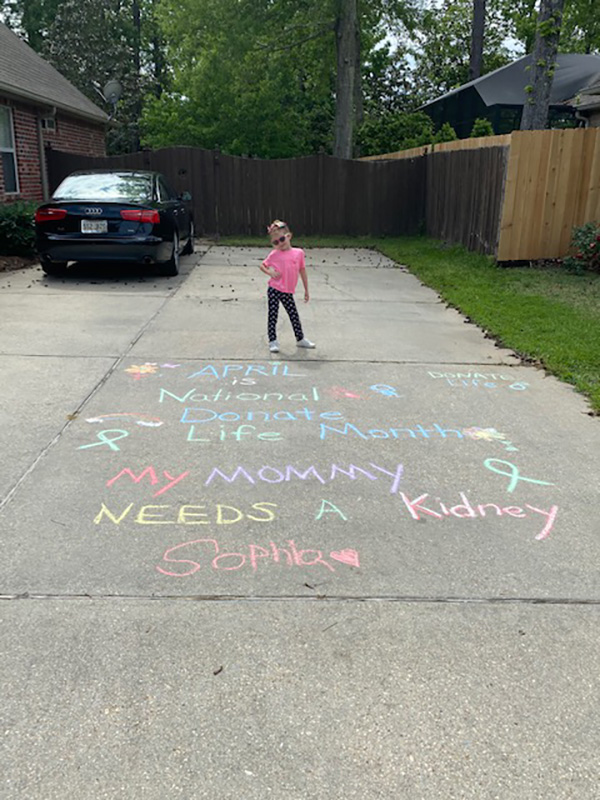 APRIL
is
National
Donate
Life Month
DONATE
Life
My MOMMY
NEEDS A Kidney
Sophia